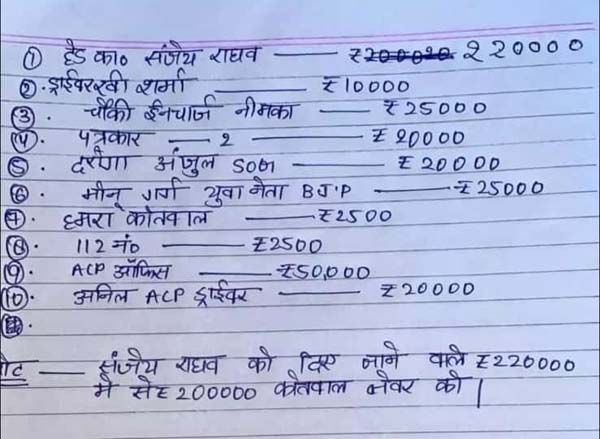 ① हेड का० संजेय राघव —— ₹200020 220000
②. ड्राईवर रवी शर्मा —— ₹10000
③. चौकी ईनचार्ज नीमका — ₹25000
④. पत्रकार — 2 —— ₹20000
⑤. दरोगा अंजुल SOG —— ₹20000
⑥. मीनू गर्ग युवा नेता BJP —— ₹25000
⑦. हमरा कोतवाल —— ₹2500
⑧. 112 नं० —— ₹2500
⑨. ACP ऑफिस —— ₹50,000
⑩. अनिल ACP ड्राईवर —— ₹20000
नोट — संजेय राघव को दिए जाने वाले ₹220000
मे से ₹200000 कोतवाल जेवर को |